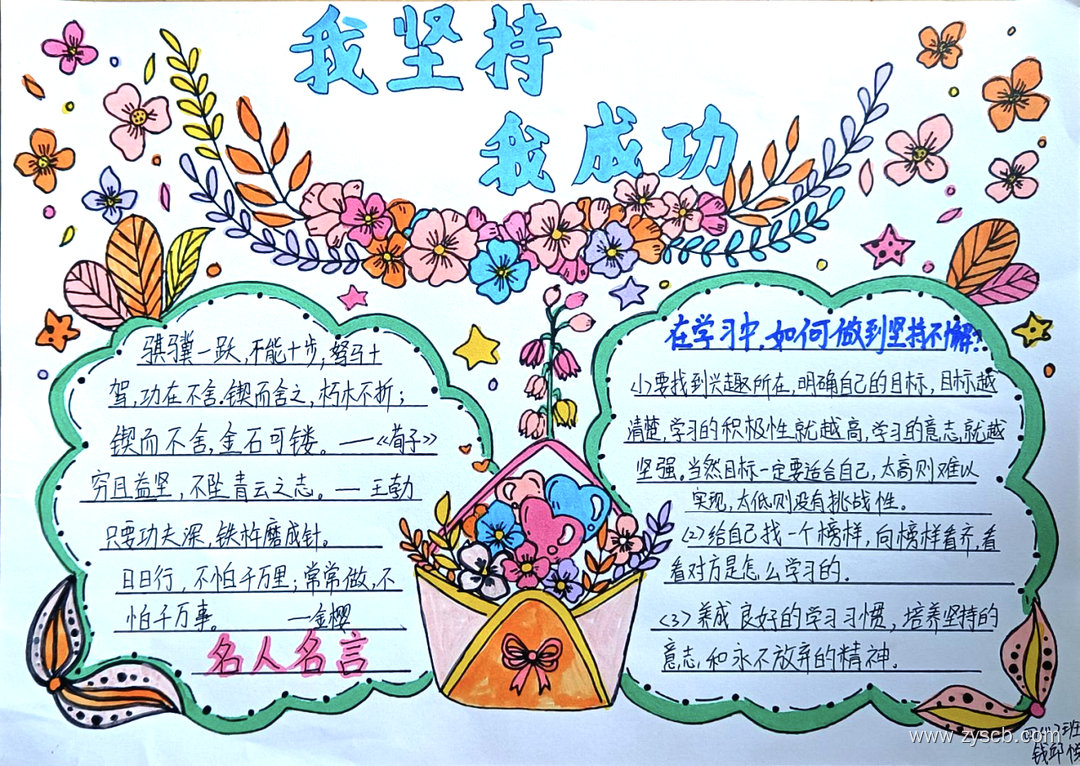 我坚持
我成功
骐骥一跃,不能十步;驽马十
驾,功在不舍.锲而舍之,朽木不折;
锲而不舍,金石可镂。——《荀子》
穷且益坚,不坠青云之志。——王勃
只要功夫深,铁杵磨成针。
日日行,不怕千万里;常常做,不
怕千万事。——金樱
名人名言
在学习中,如何做到坚持不懈?
(1)要找到兴趣所在,明确自己的目标,目标越
清楚,学习的积极性就越高,学习的意志就越
坚强。当然目标一定要适合自己,太高则难以
实现,太低则没有挑战性。
(2)给自己找一个榜样,向榜样看齐,看
看对方是怎么学习的.
(3)养成良好的学习习惯,培养坚持的
意志,和永不放弃的精神。
www.zyscb.com
班
钱